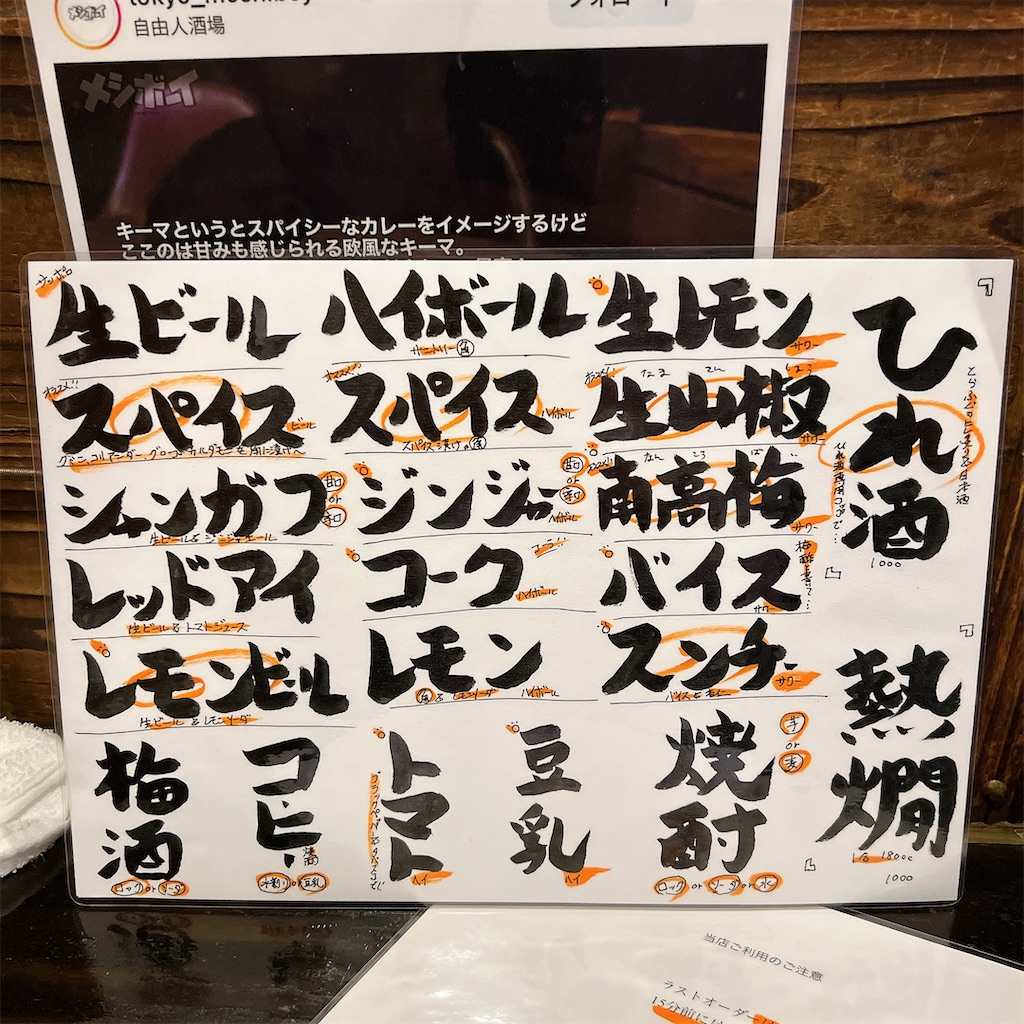 メシボイ
自由人酒場
フォロー中
メシボーイ
キーマというとスパイシーなカレーをイメージするけど
ここのは甘みも感じられる欧風なキーマ。
サッポロ
生ビール
ハイボール
サントリー角
生レモン
サワー
オススメ!!
スパイス
ビール
クミン、コリアンダー、グローブ、カルダモンを
オススメ!!
スパイス
ハイボール
スパイス漬けの角
オススメ!!
生山椒
サワー
シャンガフ
甘口
or
辛口
生ビール&ジンジャエール
ジンジャー
甘口
or
辛口
ハイボール
オススメ!!
なん こう ばい
南高梅
サワー
レッドアイ
生ビール&トマトジュース
コーク
ハイボール
バイス
サワー
レモンビール
生ビール&レモンソーダ
レモン
ハイボール
角&レモンソーダ
スンチー
サワー
梅酒
ロック or ソーダ
コーヒー
焼酎
水割り or 豆乳
トマト
ハイ
豆乳
ハイ
焼酎
芋
or
麦
ロック or ソーダ or 水
『
ひれ酒
とらふぐのヒレ
日本酒
1000
』
『
熱燗
1合
1000
』
当店ご利用のご注意
ラストオーダーは
15分前には